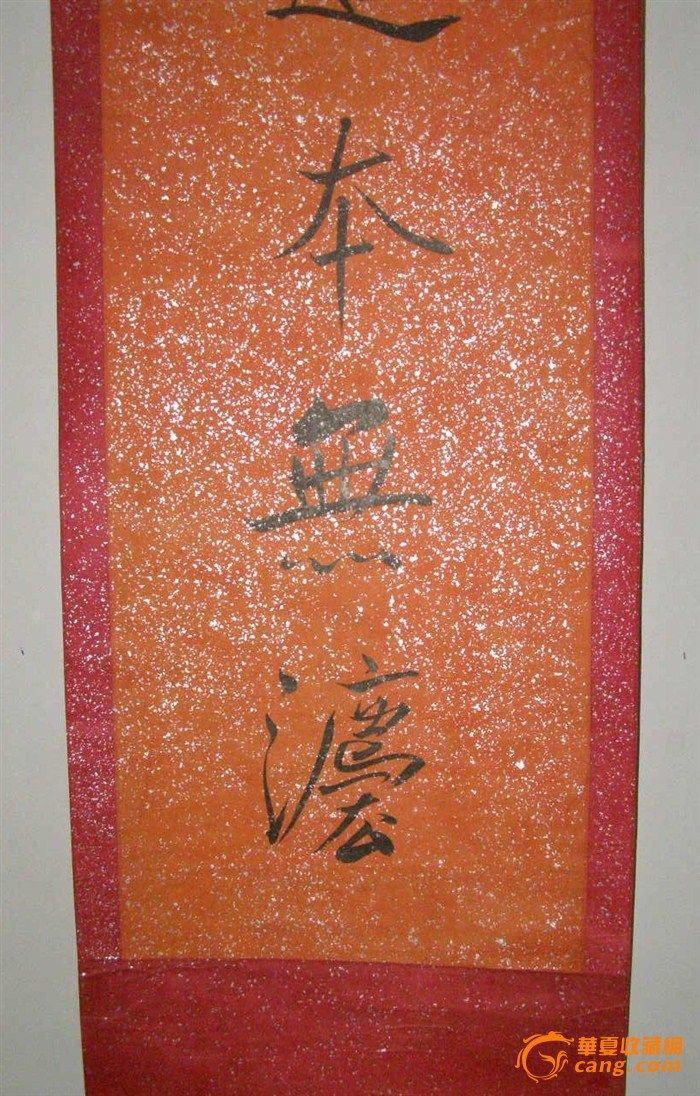 本
無
灋
華夏收藏網
cang.com